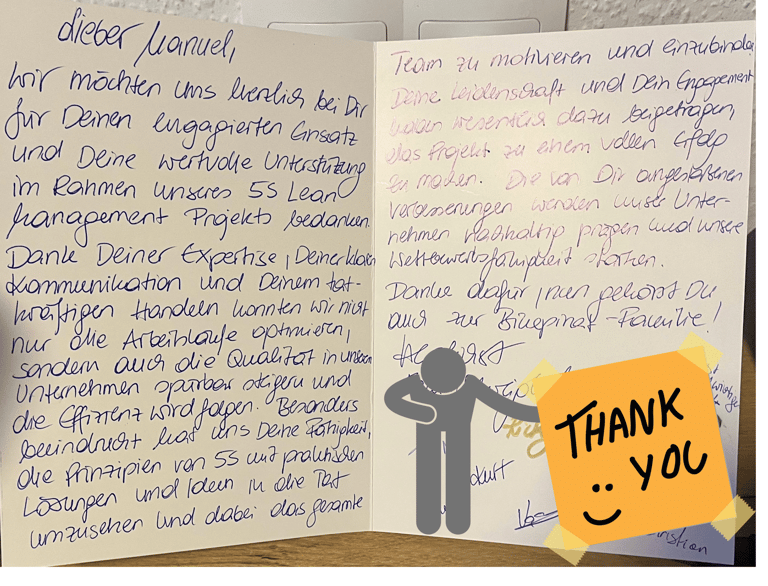 Dieber Manuel,
Wir möchten uns herzlich bei Dir
für Deinen engagierten Einsatz
und Deine wertvolle Unterstützung
im Rahmen unseres 5S Lean
Management Projekts bedanken.
Danke Deiner Expertise, Deiner klaren
Kommunikation und Deinem tat-
kräftigen Handeln konnten wir nicht
nur die Arbeitsläufe optimieren,
sondern auch die Qualität in unserem
Unternehmen spürbar steigern und
die Effizienz wird folgen. Besonders
beeindruckt hat uns Deine Fähigkeit,
die Prinzipien von 5S mit praktischen
Lösungen und Ideen in die Tat
umzusetzen und dabei das gesamte
Team zu motivieren und einzubinden.
Deine Leidenschaft und Dein Engagement
haben wesentlich dazu beigetragen,
das Projekt zu einem vollen Erfolg
zu machen. Die von Dir angestoßenen
Verbesserungen werden unser Unter-
nehmen nachhaltig prägen und unsere
Wettbewerbsfähigkeit stärken.
Danke dafür, nun gehörst Du
auch zur Blueprint-Familie!
THANK
YOU